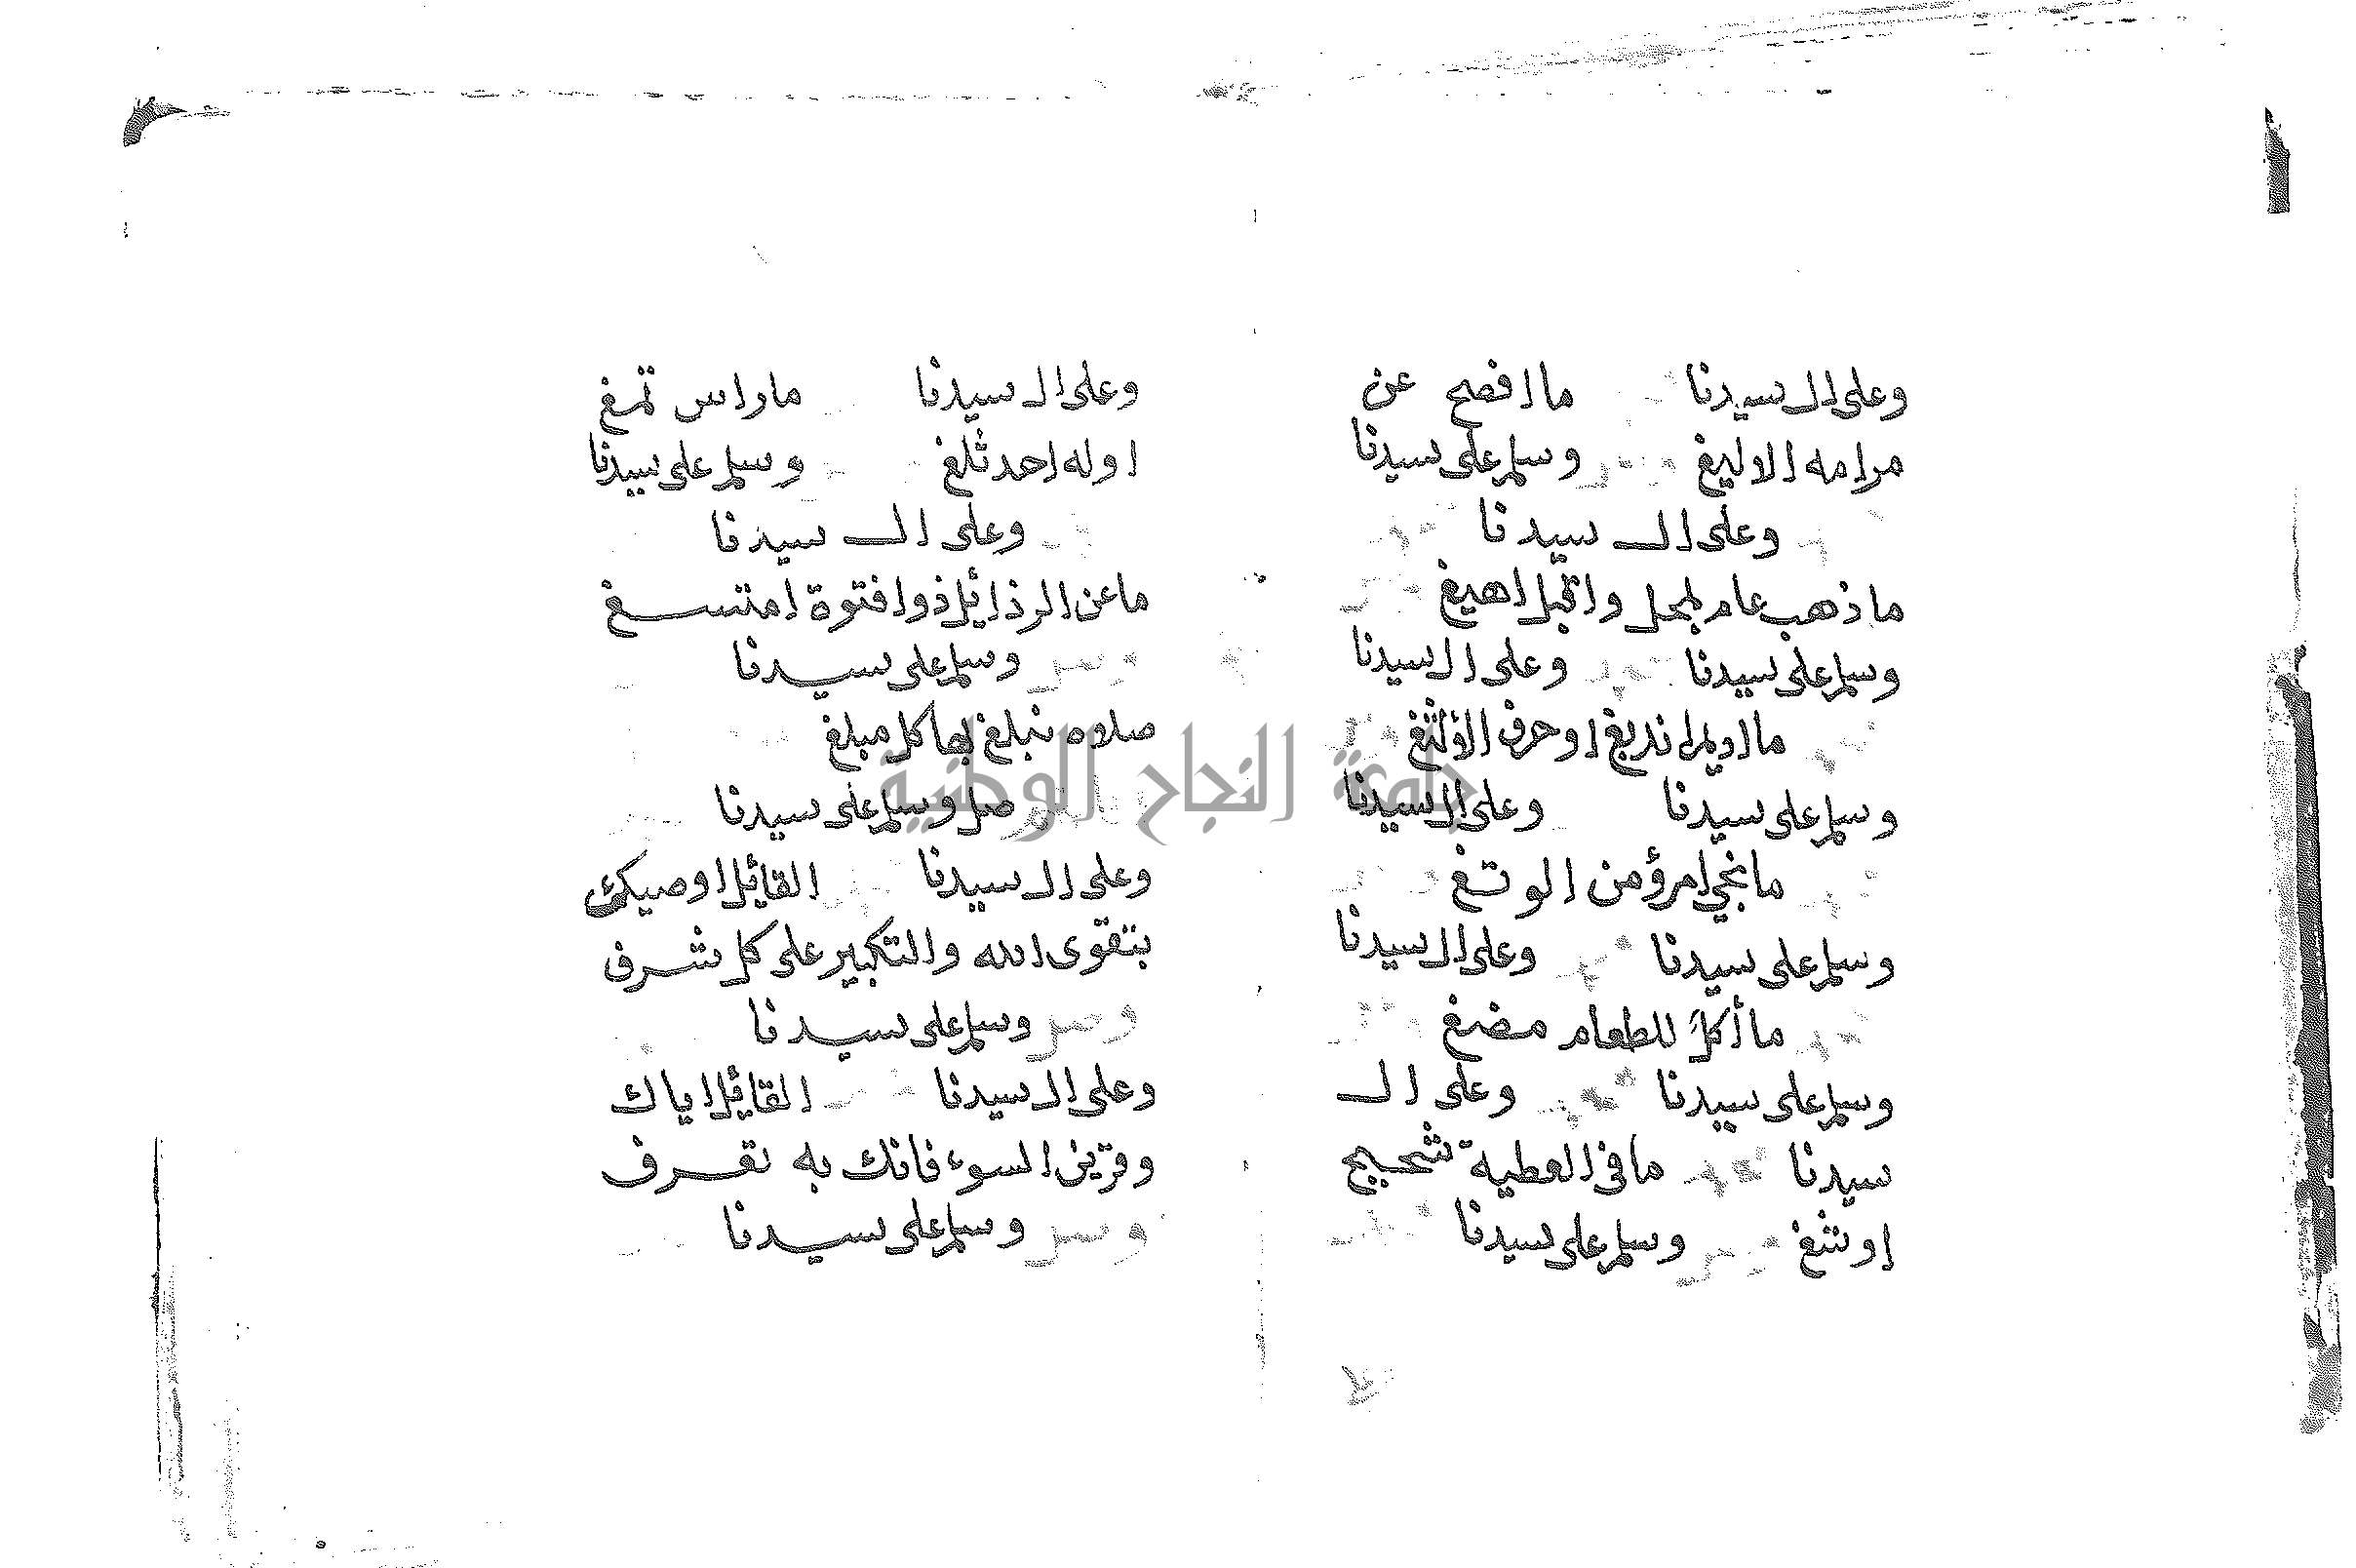 وعلى ال سيدنا ما افصح عن
مرامه الاليغ وسلم على سيدنا
وعلى ال سيدنا
ما ذهب عام لمحل واقبل اهيغ
وسلم على سيدنا وعلى ال سيدنا
ما اديم اندبغ او حرف الالثغ
وسلم على سيدنا وعلى ال سيدنا
ما نجي امرؤ من الوتغ
وسلم على سيدنا وعلى ال سيدنا
ما أكل للطعام مضغ
وسلم على سيدنا وعلى ال
سيدنا ما في العطية شحيح
اوشغ وسلم على سيدنا
وعلى ال سيدنا ما راس تمغ
اوله احد ثلغ وسلم على سيدنا
وعلى ال سيدنا
ما عن الرذائل ذوا فتوة امتسغ
وسلم على سيدنا
صلاه نبلغ بها كل مبلغ
صل وسلم على سيدنا
وعلى ال سيدنا القائل اوصيك
بتقوى الله والتكبير على كل شرف
وسلم على سيدنا
وعلى ال سيدنا القائل اياك
وقرين السوء فانك به تعرف
وسلم على سيدنا
جامعة النجاح الوطنية